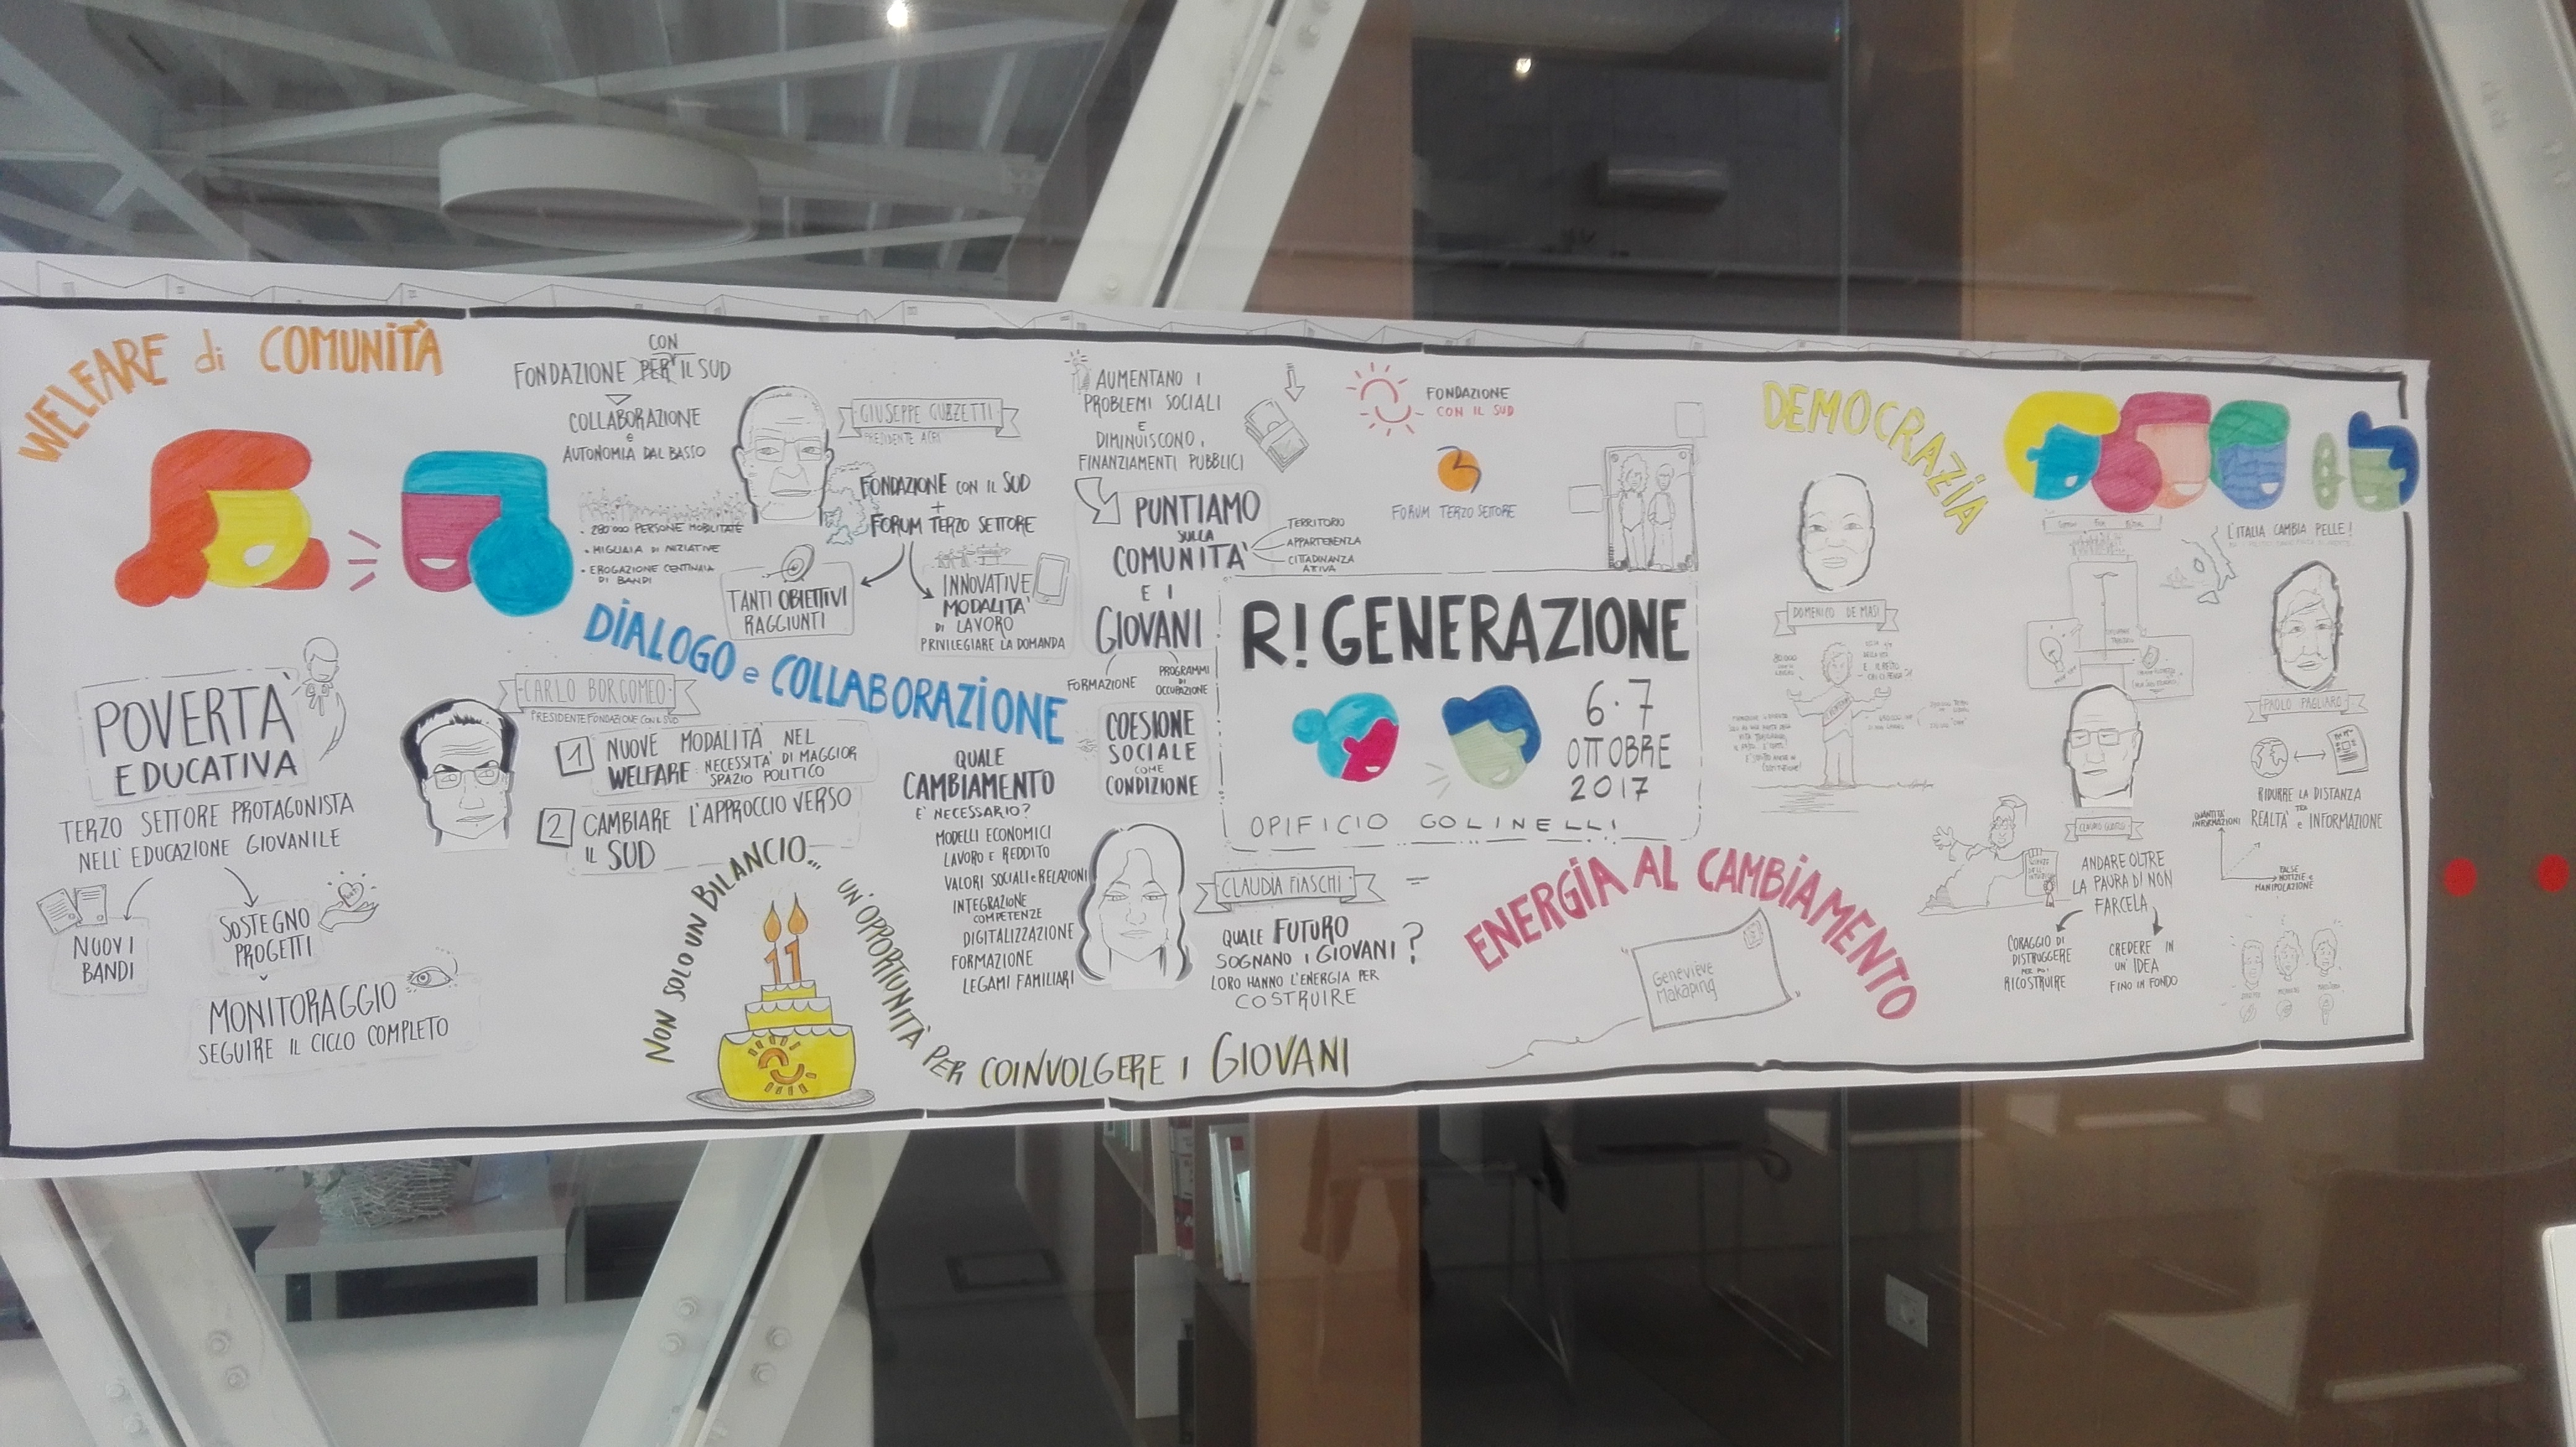 WELFARE di COMUNITÀ
FONDAZIONE PER IL SUD
CON
COLLABORAZIONE
e
AUTONOMIA DAL BASSO
• 280'000 PERSONE MOBILITATE
• MIGLIAIA DI INIZIATIVE
• EROGAZIONE CENTINAIA
DI BANDI
GIUSEPPE GUZZETTI
PRESIDENTE ACRI
FONDAZIONE CON IL SUD
+
FORUM TERZO SETTORE
TANTI OBIETTIVI
RAGGIUNTI
INNOVATIVE
MODALITÀ
DI LAVORO
PRIVILEGIARE LA DOMANDA
DIALOGO e COLLABORAZIONE
POVERTÀ
EDUCATIVA
TERZO SETTORE PROTAGONISTA
NELL'EDUCAZIONE GIOVANILE
NUOVI
BANDI
SOSTEGNO
PROGETTI
MONITORAGGIO
SEGUIRE IL CICLO COMPLETO
CARLO BORGOMEO
PRESIDENTE FONDAZIONE CON IL SUD
1 NUOVE MODALITÀ NEL
WELFARE: NECESSITÀ DI MAGGIOR
SPAZIO POLITICO
2 CAMBIARE L'APPROCCIO VERSO
IL SUD
NON SOLO UN BILANCIO... UN'OPPORTUNITÀ PER COINVOLGERE I GIOVANI
11
QUALE
CAMBIAMENTO
E' NECESSARIO?
MODELLI ECONOMICI
LAVORO E REDDITO
VALORI SOCIALI e RELAZIONI
INTEGRAZIONE
COMPETENZE
DIGITALIZZAZIONE
FORMAZIONE
LEGAMI FAMILIARI
AUMENTANO I
PROBLEMI SOCIALI
E
DIMINUISCONO I
FINANZIAMENTI PUBBLICI
PUNTIAMO
SULLA
COMUNITÀ
E I
GIOVANI
TERRITORIO
APPARTENENZA
CITTADINANZA
ATTIVA
FORMAZIONE
PROGRAMMI
DI
OCCUPAZIONE
COESIONE
SOCIALE
COME
CONDIZIONE
CLAUDIA FIASCHI
QUALE FUTURO
SOGNANO I GIOVANI?
LORO HANNO L'ENERGIA PER
COSTRUIRE
FONDAZIONE
CON IL SUD
FORUM TERZO SETTORE
R!GENERAZIONE
6·7
OTTOBRE
2017
OPIFICIO GOLINELLI
ENERGIA AL CAMBIAMENTO
Geneviève
Makaping
DEMOCRAZIA
DOMENICO DE MASI
ANDARE OLTRE
LA PAURA DI NON
FARCELA
CORAGGIO DI
DISTRUGGERE
PER POI
RICOSTRUIRE
CREDERE IN
UN'IDEA
FINO IN FONDO
L'ITALIA CAMBIA PELLE!
PAOLO PAGLIARO
RIDURRE LA DISTANZA
TRA
REALTÀ e INFORMAZIONE
QUANTITÀ
INFORMAZIONI
FALSE
NOTIZIE e
MANIPOLAZIONE